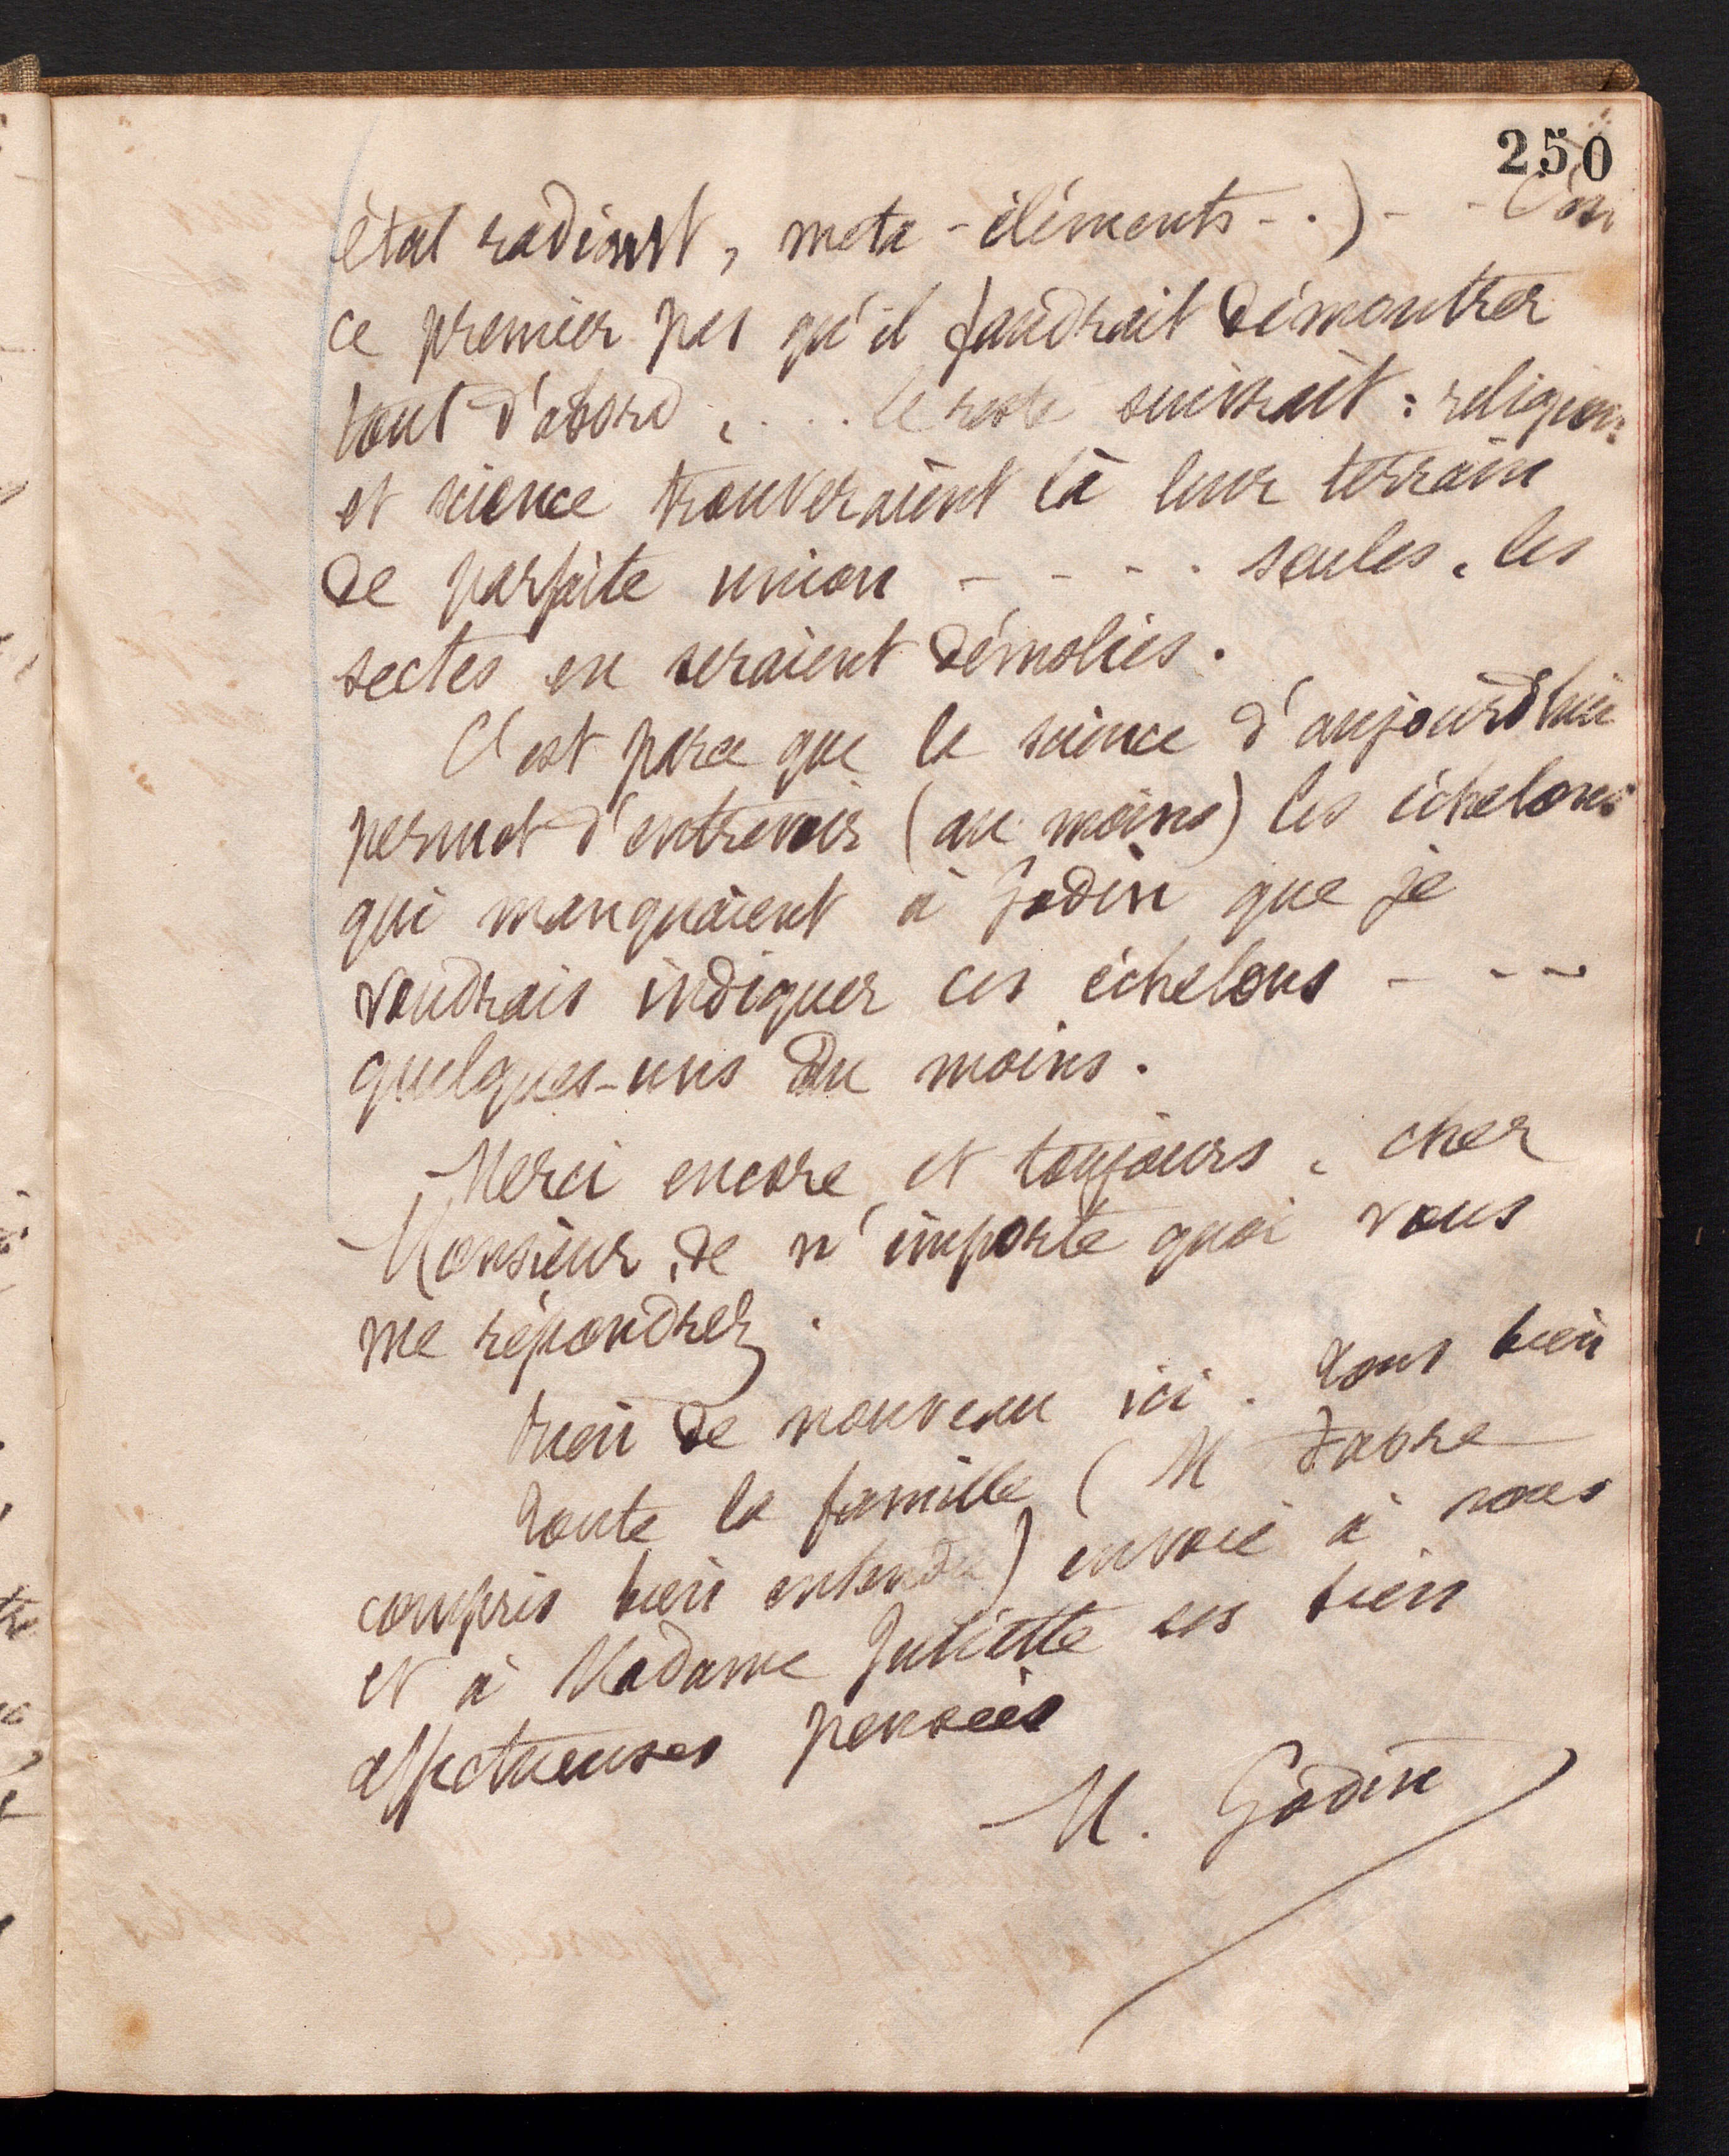 250
état radiant, meta-éléments - .) - - C'est
ce premier pas qu'il faudrait démontrer
tout d'abord, ... le reste suivrait : religion
et science trouveraient là leur terrain
de parfaite union - - - . seules, les
sectes en seraient démolies.
C'est parce que la science d'aujourd'hui
permet d'entrevoir (au moins) les échelons
qui manquaient à Godin que je
voudrais indiquer ces échelons - - -
quelques-uns du moins.
Merci encore et toujours, cher
Monsieur, de n'importe quoi vous
me répondrez.
Rien de nouveau ici. Tous bien
Toute la famille (M Fabre
compris bien entendu) envoie à vous
et à Madame Juliette ses bien
affectueuses pensées
M. Godin